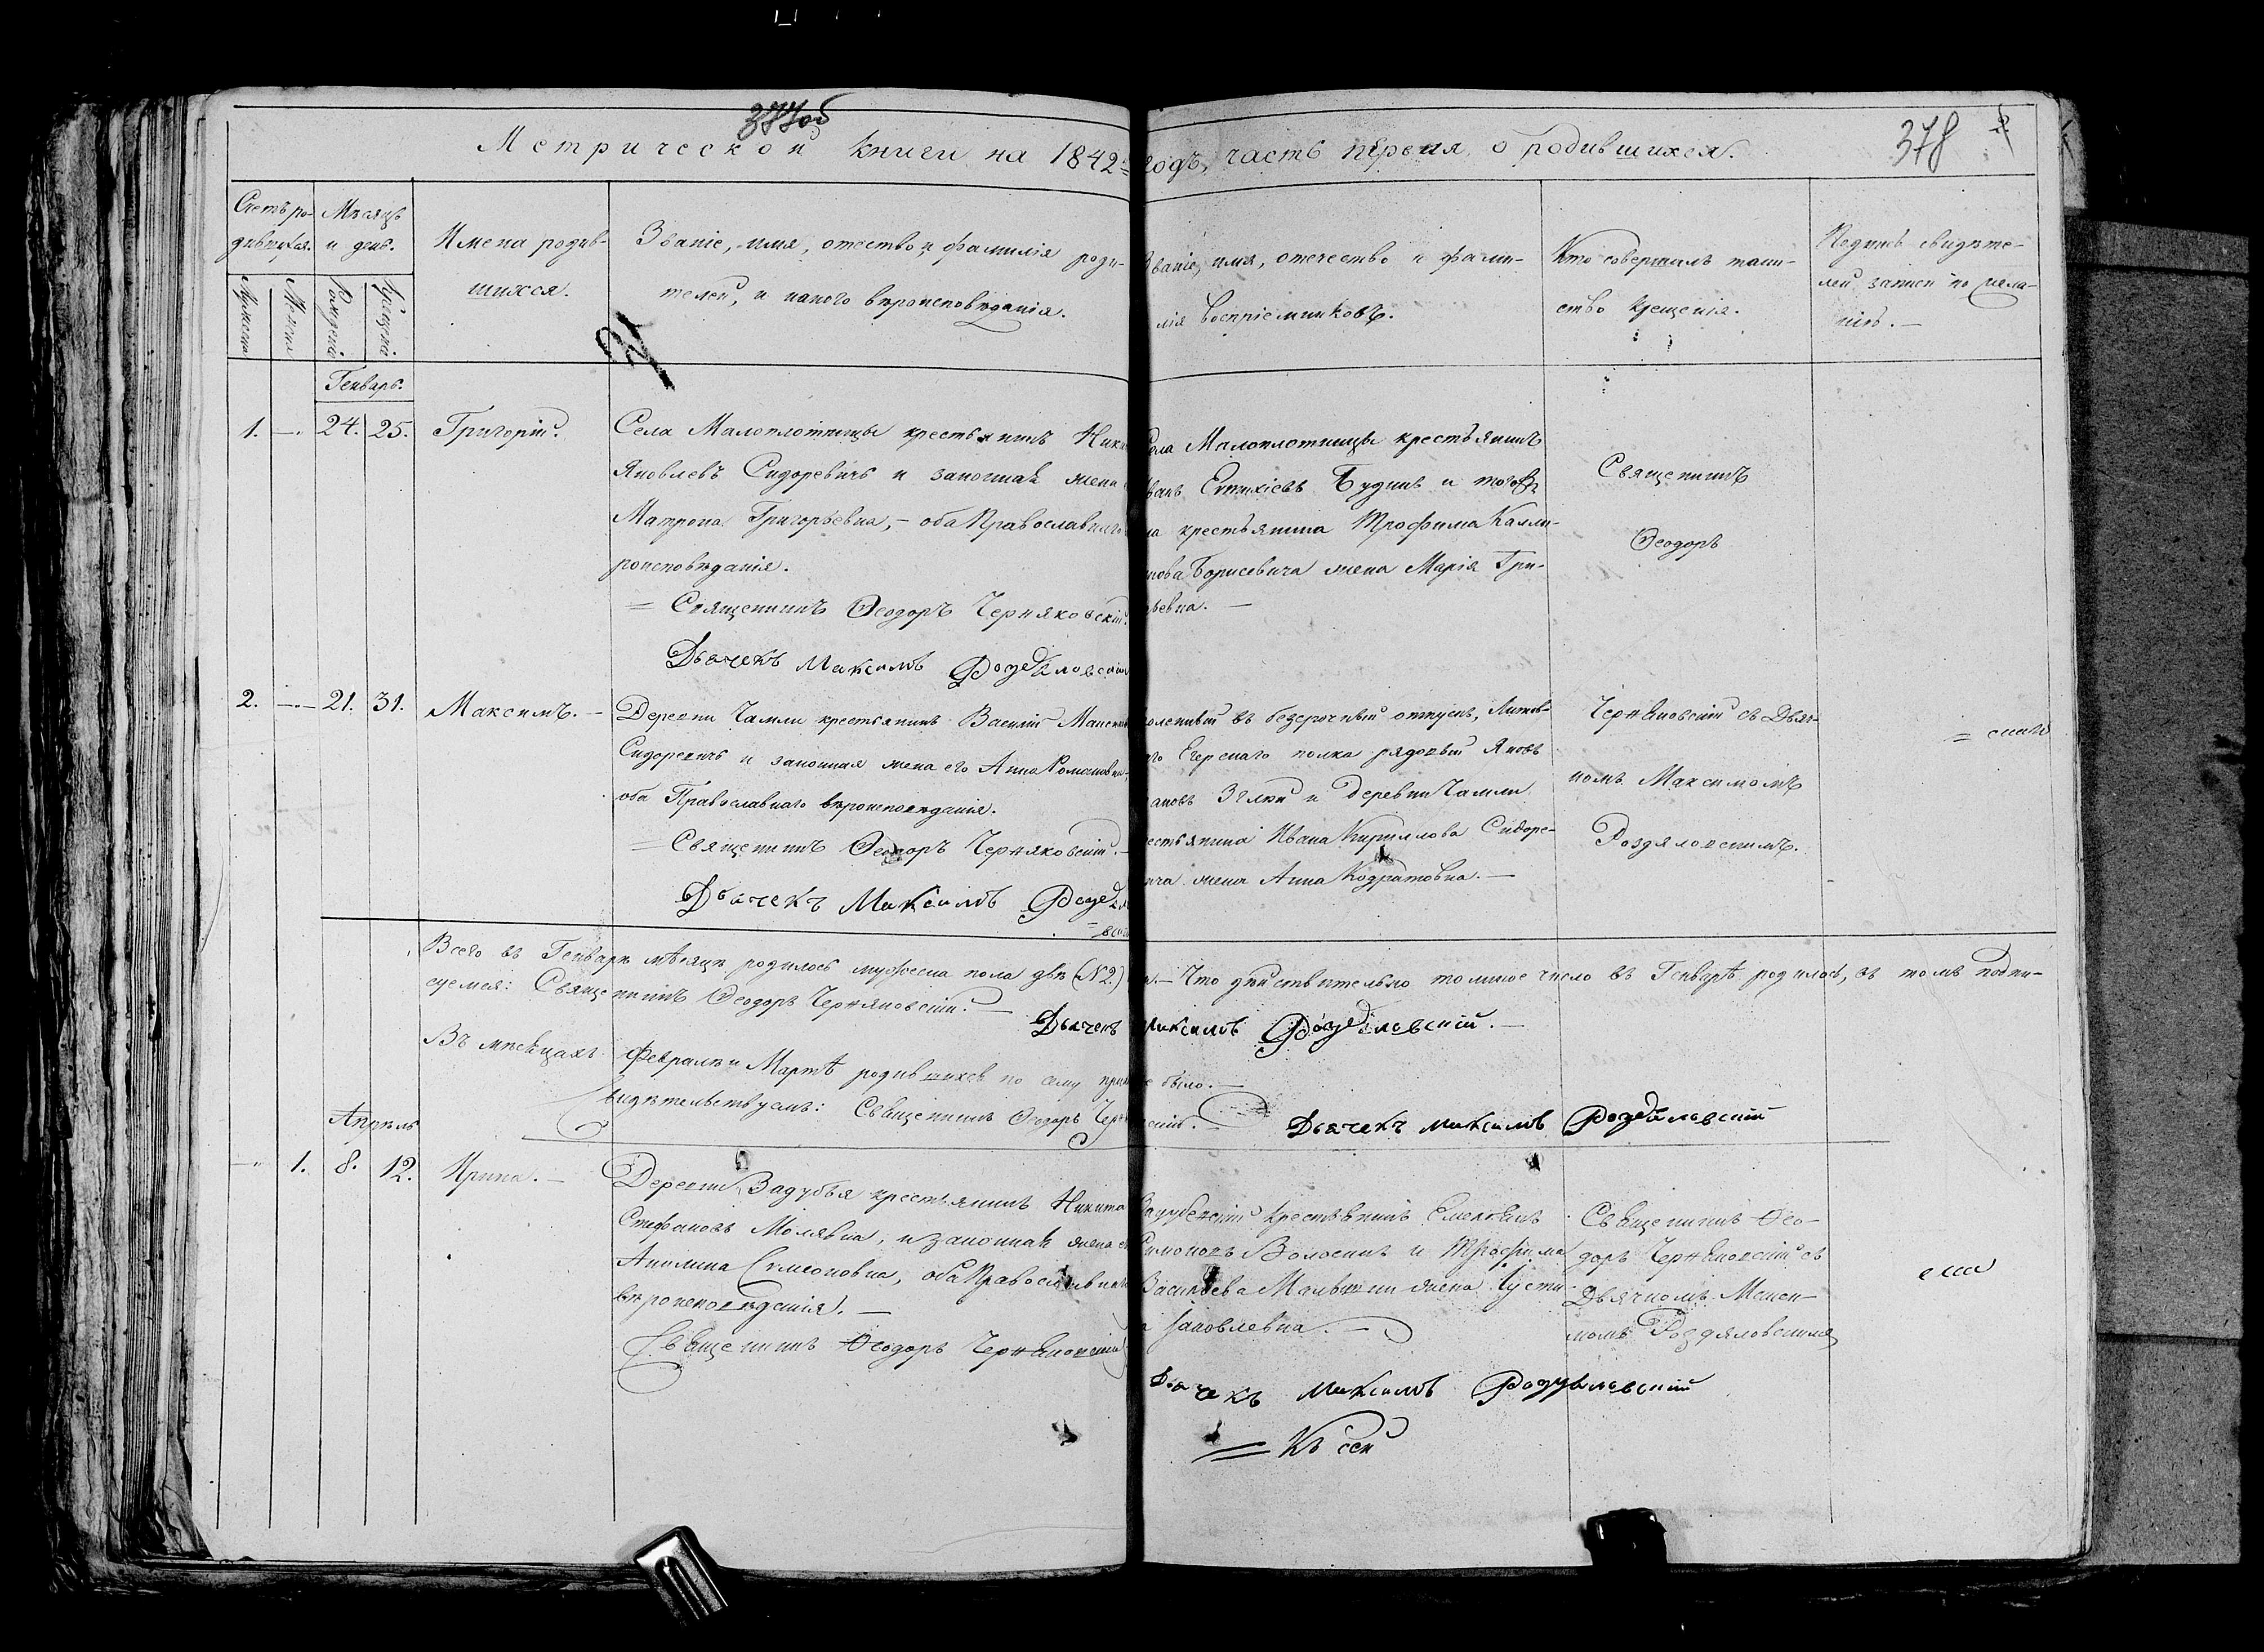 377об
378
Метрической книги на 1842 годъ, часть первая о родившихся.
Счетъ ро-
дившихся.
Мѣсяцъ
и день.
Имена родив-
шихся.
Званіе, имя, отество, и фамилія роди-
телей, и какого вѣроисповѣданія.
Званіе, имя, отечество и фами-
лія воспріемниковъ.
Кто совершалъ таин-
ство крещенія.
Подпись свидѣте-
лей записи по жела-
нію.
Мужеска
Женска
Рожденія
Крещенія
Генварь.
1. 24. 25. Григорій.
Села Малоплотницы крестьянинъ
Яковлевъ Сидоревичъ и законная жена
Матрона Григорьевна, – оба Православнаго
роисповѣданія.
= Священникъ Ѳеодоръ Черняковскій.
Дьячекъ Максимъ
Села Малоплотницы крестьянинъ
Евтихіевъ Будникъ и того
крестьянина Трофима Калли-
Борисевича жена Марія Гри-
рьевна. —
Священникъ
Ѳеодоръ
2. 21. 31. Максимъ. –
Деревни Чамли крестьянинъ Василій
Сидоревичъ и законная жена его Анна Романовна,
оба Православнаго вѣроисповѣданія.
= Священникъ Ѳеодоръ Черняковскій. –
Дьячекъ Максимъ
въ безсрочный отпускъ, Литов-
го Егерскаго полка рядовый Яковъ
и деревни Чамли
крестьянина Ивана Кириллова Сидоре-
вича жена Анна Кодратовна. —
Черняковскій съ Дьяч-
комъ Максимомъ
Роздяловскимъ.
Всего въ Генварѣ мѣсяцѣ родилось мужеска пола два (№2.) – Что дѣйствительно толикое число въ Генварѣ родилось, въ томъ подпи-
суемся: Священникъ Ѳеодоръ Черняковскій. —
Дьячекъ Максимъ Роздяловскій. —
Въ мѣсяцахъ Февралѣ и Мартѣ родившихся по сему не было. —
видѣтельствуемъ: Священникъ Ѳеодоръ
Дьячекъ Максимъ Роздяловскій
Апрѣль
1. 8. 12. Ирина. –
Деревни Задубья крестьянинъ Никита
Стефановъ Молявка, и законная жена
Акилина Симеоновна, оба Православнаго
вѣроисповѣданія. —
Священникъ Ѳеодоръ Черняковскій
крестьянинъ
и Трофима
Васильева жена Іусти-
Іаковлевна. —
Священникъ Ѳео-
доръ Черняковскій съ
Дьячкомъ
Роздяловскимъ
Дьячекъ Максимъ Роздяловскій
= Къ сей